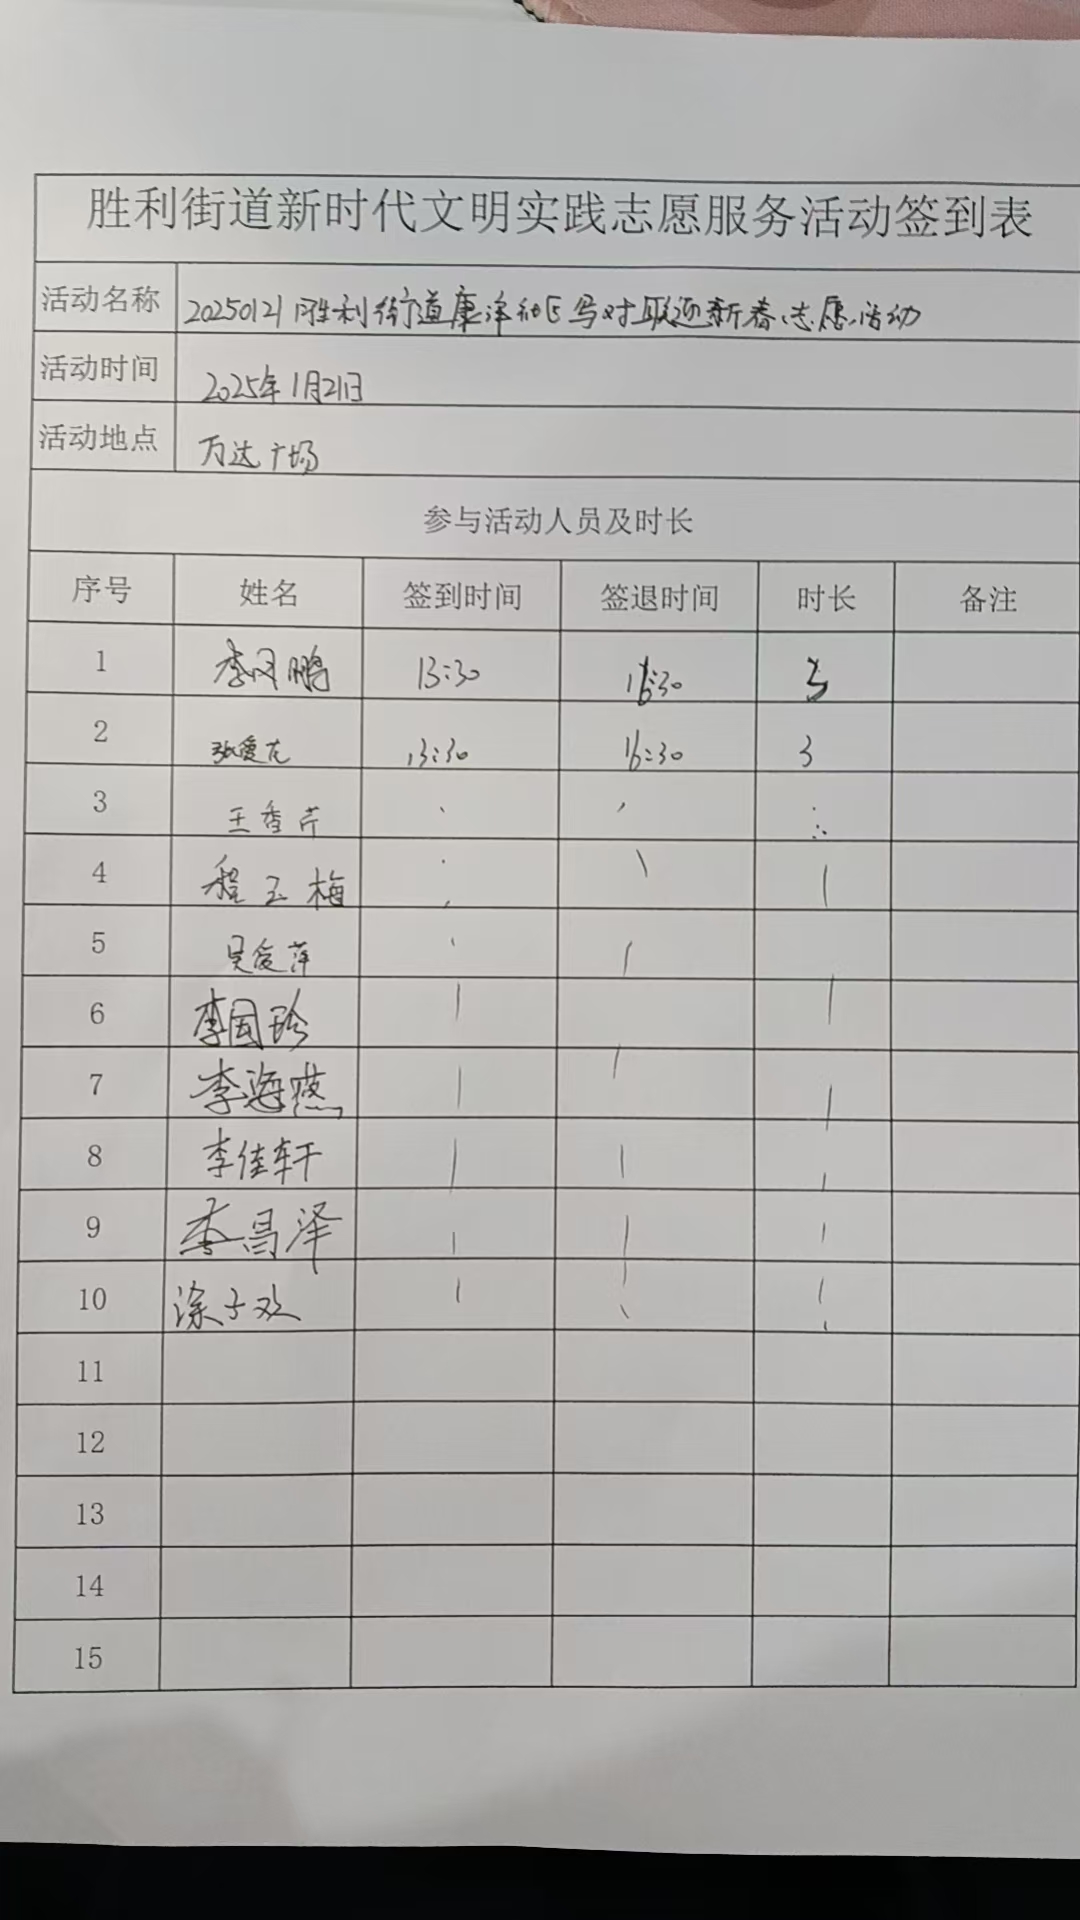 胜利街道新时代文明实践志愿服务活动签到表
活动名称 20250121胜利街道康泽社区写对联迎新春志愿活动
活动时间 2025年1月21日
活动地点 万达广场
参与活动人员及时长
序号 姓名 签到时间 签退时间 时长 备注
1 李凤鹏 13:30 16:30 3
2 张爱花 13:30 16:30 3
3 王香芹
4 程玉梅
5 吴俊萍
6 李国珍
7 李海燕
8 李佳轩
9 李昌泽
10 涂子欢
11
12
13
14
15